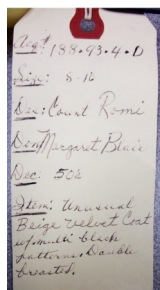 Acq#: 188.93.4.D
Size: 8-10
Des: Count Romi
Don: Margaret Blair
Dec: 50s
Item: Unusual
Beige Velvet Coat
w/multi black
patterns. Double
breasted.